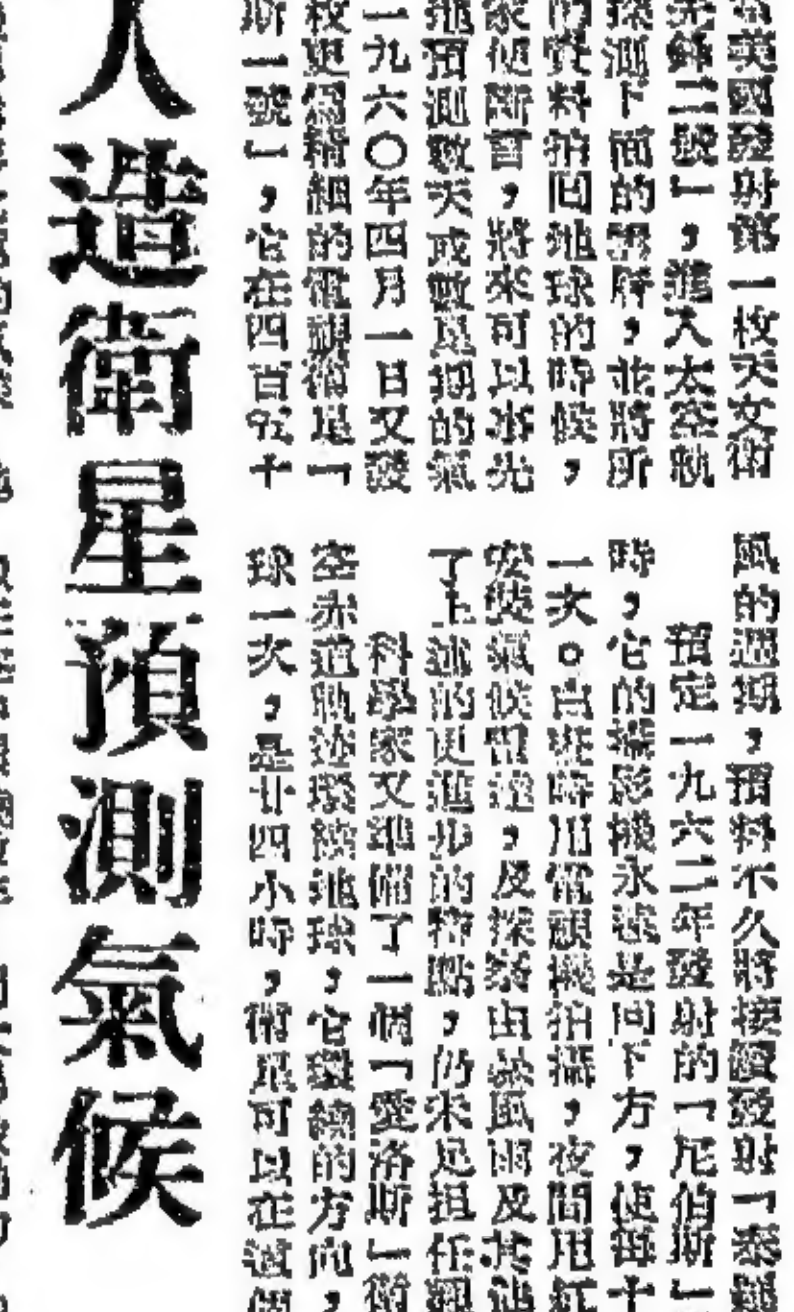 美國發射第一枚天文衛
先鋒二號」,進入太空軌
探測下面的雲層,並將所
的資料拍回地球的時候,
家便斷言,將來可以事先
地預測數天或數星期的氣
一九六〇年四月一日又發
枚更為精細的電視衛星「
斯一號」,它在四百五十
風的週期,預料不久將接續發射「泰
預定一九六二年發射的「尼伯斯」
時,它的攝影機永遠是向下方,使每十
一次。白晝時用電視機拍攝,夜間用紅
安裝氣候雷達,及探察由暴風雨及其他
了上述的更進步的特點,仍未足担任觀
科學家又準備了一個「愛洛斯」衛
空赤道軌迹環繞地球,它環繞的方向,
球一次,是廿四小時,衛星可以在這個
人造衛星預測氣候